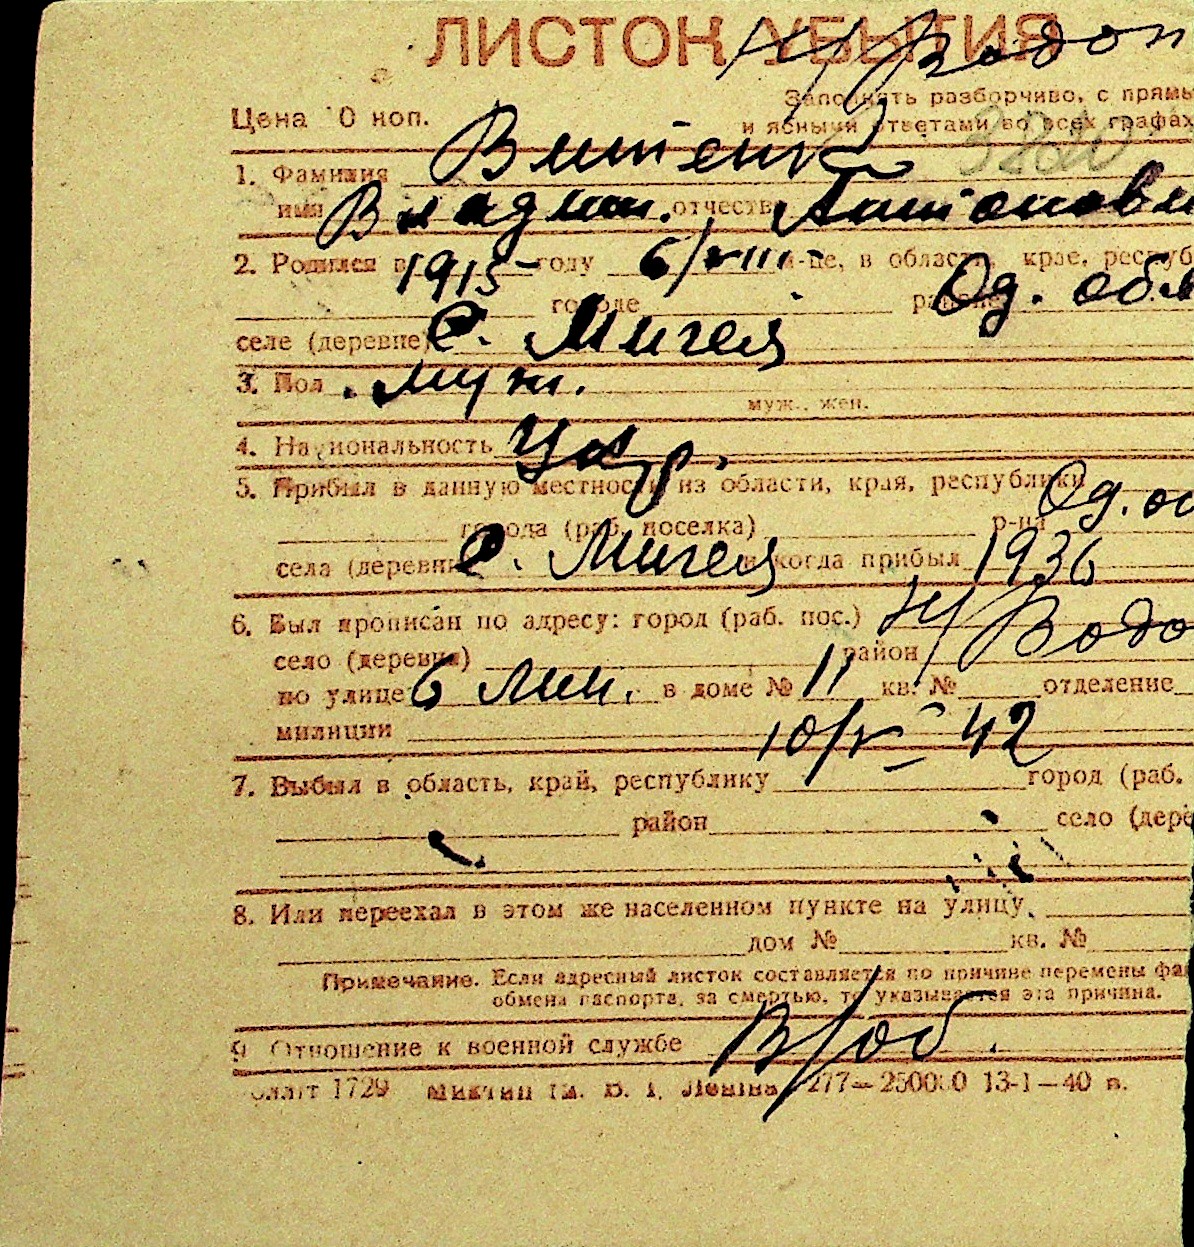 ЛИСТОК УБЫТИЯ
Н/Водоп
Заполнять разборчиво, с прямы
Цена 10 коп.
и ясными ответами во всех графах
1. Фамилия Витенко
имя Владим. отчество Антонови
2. Родился в 1915 году 6/VIII м-це, в области, крае, респуб
городе районе Од. обл
селе (деревне) с. Мигея
3. Пол муж.
муж., жен.
4. Национальность Укр.
5. Прибыл в данную местность из области, края, республики Од. об
города (раб. поселка) р-на
села (деревни) с. Мигея и когда прибыл 1936
6. Был прописан по адресу: город (раб. пос.) Н/Водо
село (деревня) район
по улице 6 Лин. в доме № 11 кв. № отделение
милиции 10/V 42
7. Выбыл в область, край, республику город (раб.
район село (дере
8. Или переехал в этом же населенном пункте на улицу
дом № кв. №
Примечание. Если адресный листок составляется по причине перемены фа
обмена паспорта, за смертью, то указывается эта причина.
9 Отношение к военной службе В/об.
1729 им. В. І. Леніна 277—250000 13-1—40 в.